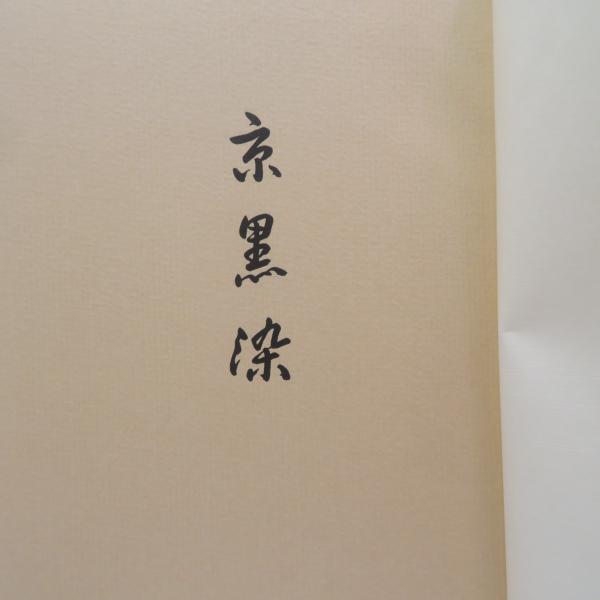 京黒染